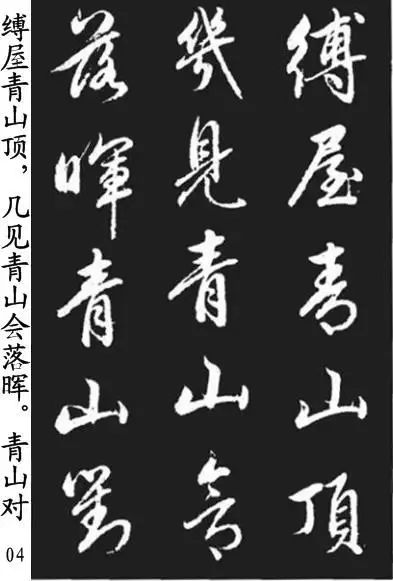 縛屋青山頂
幾見青山会
落暉青山對
缚屋青山顶，几见青山会落晖。青山对
04